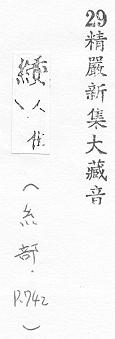 29精嚴新集大藏音
人隹
(糸部.
P.742)